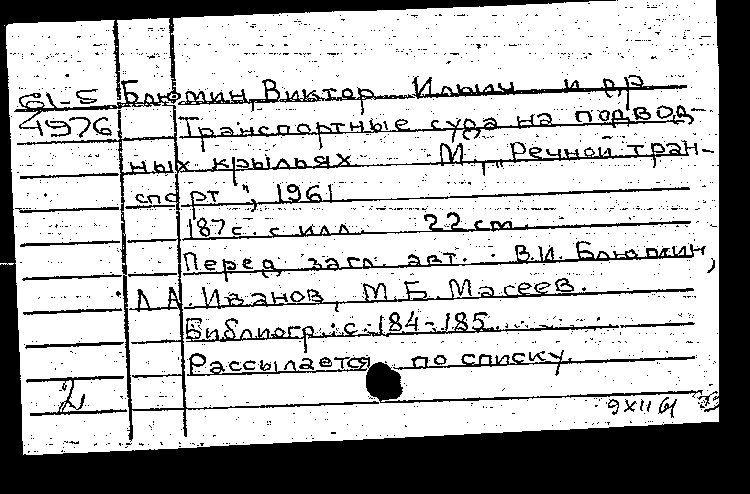 61-5 Блюмин, Виктор Ильич и др
4976 Транспортные суда на подвод-
ных крыльях М., „Речной тран-
спорт", 1961
187с. с илл. 22 cm.
Перед загл. авт.: В.И. Блюмин,
Л.А. Иванов, М.Б. Масеев.
Библиогр.: с. 184-185
Рассылается по списку.
2
9 XII 61